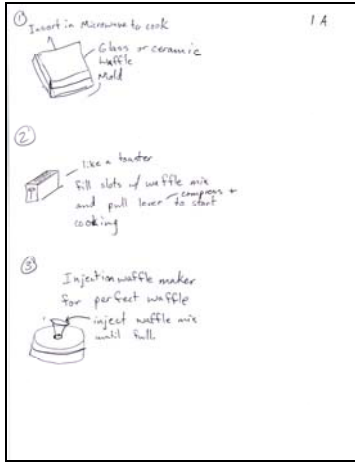 1A
① Insert in Microwave to cook
Glass or ceramic
Waffle
Mold
②
like a toaster
fill slots w/ waffle mix
and pull lever - compress +
to start
cooking
③
Injection waffle maker
for perfect waffle
inject waffle mix
until full.